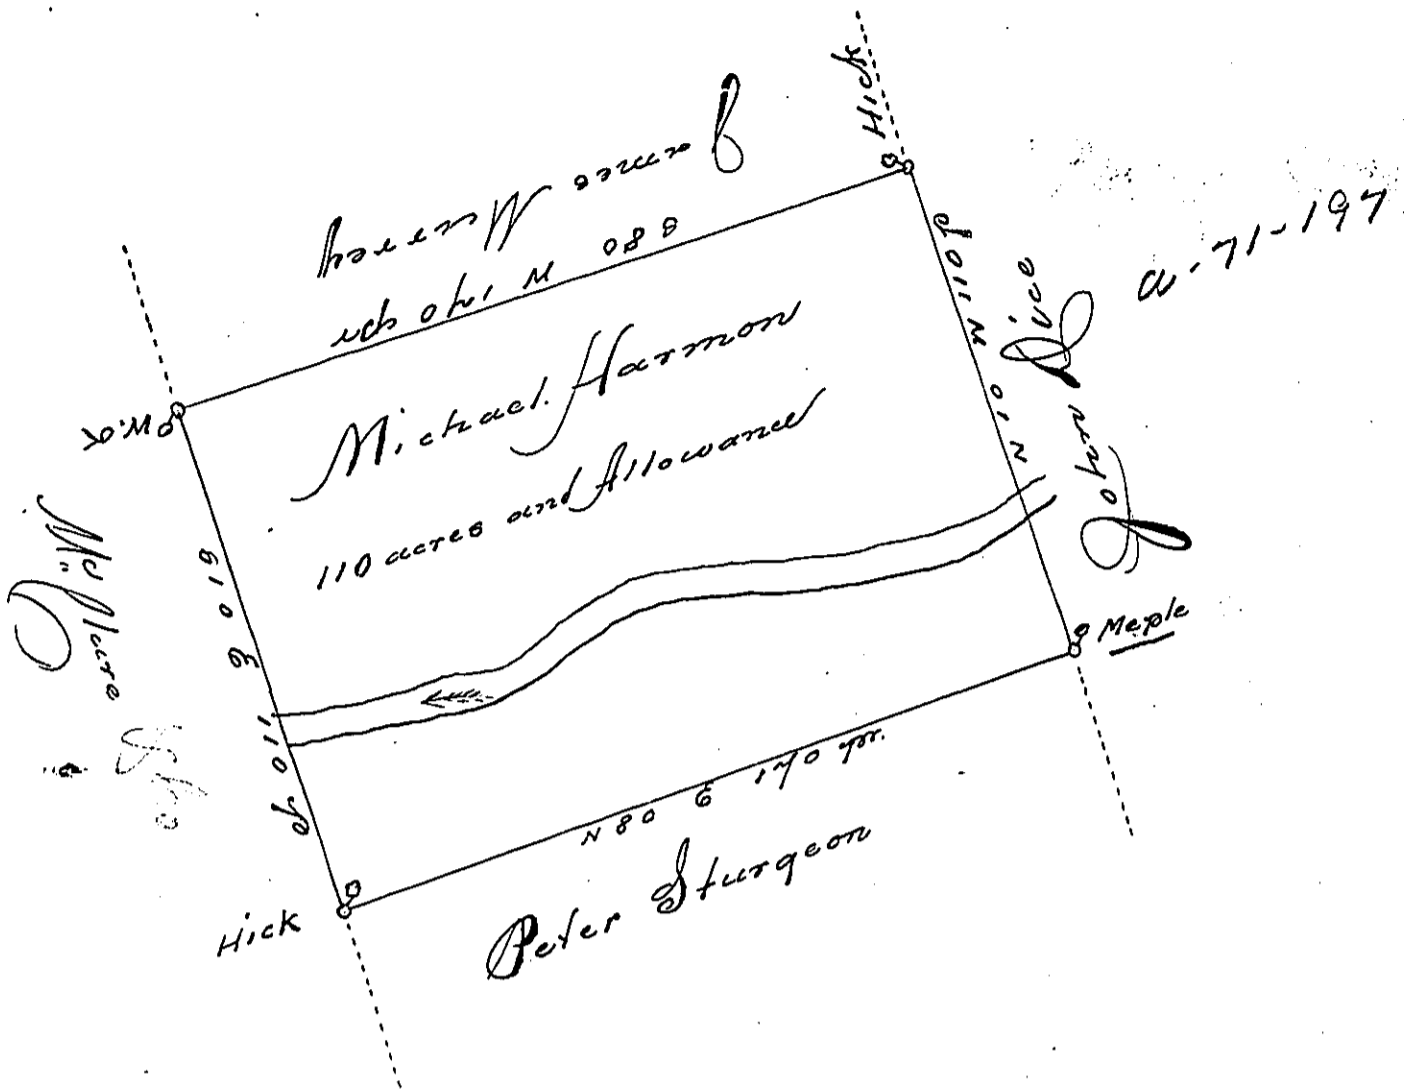 James Murrey
S 80 W 170 pr
Hick
a-71-197
N 10 W 110 P
John Dice
Michael. Harmon
110 acres and Allowance
W.OK
S 10 E 110 P
Meple
N 80 E 170 pr.
Hick
Peter Sturgeon